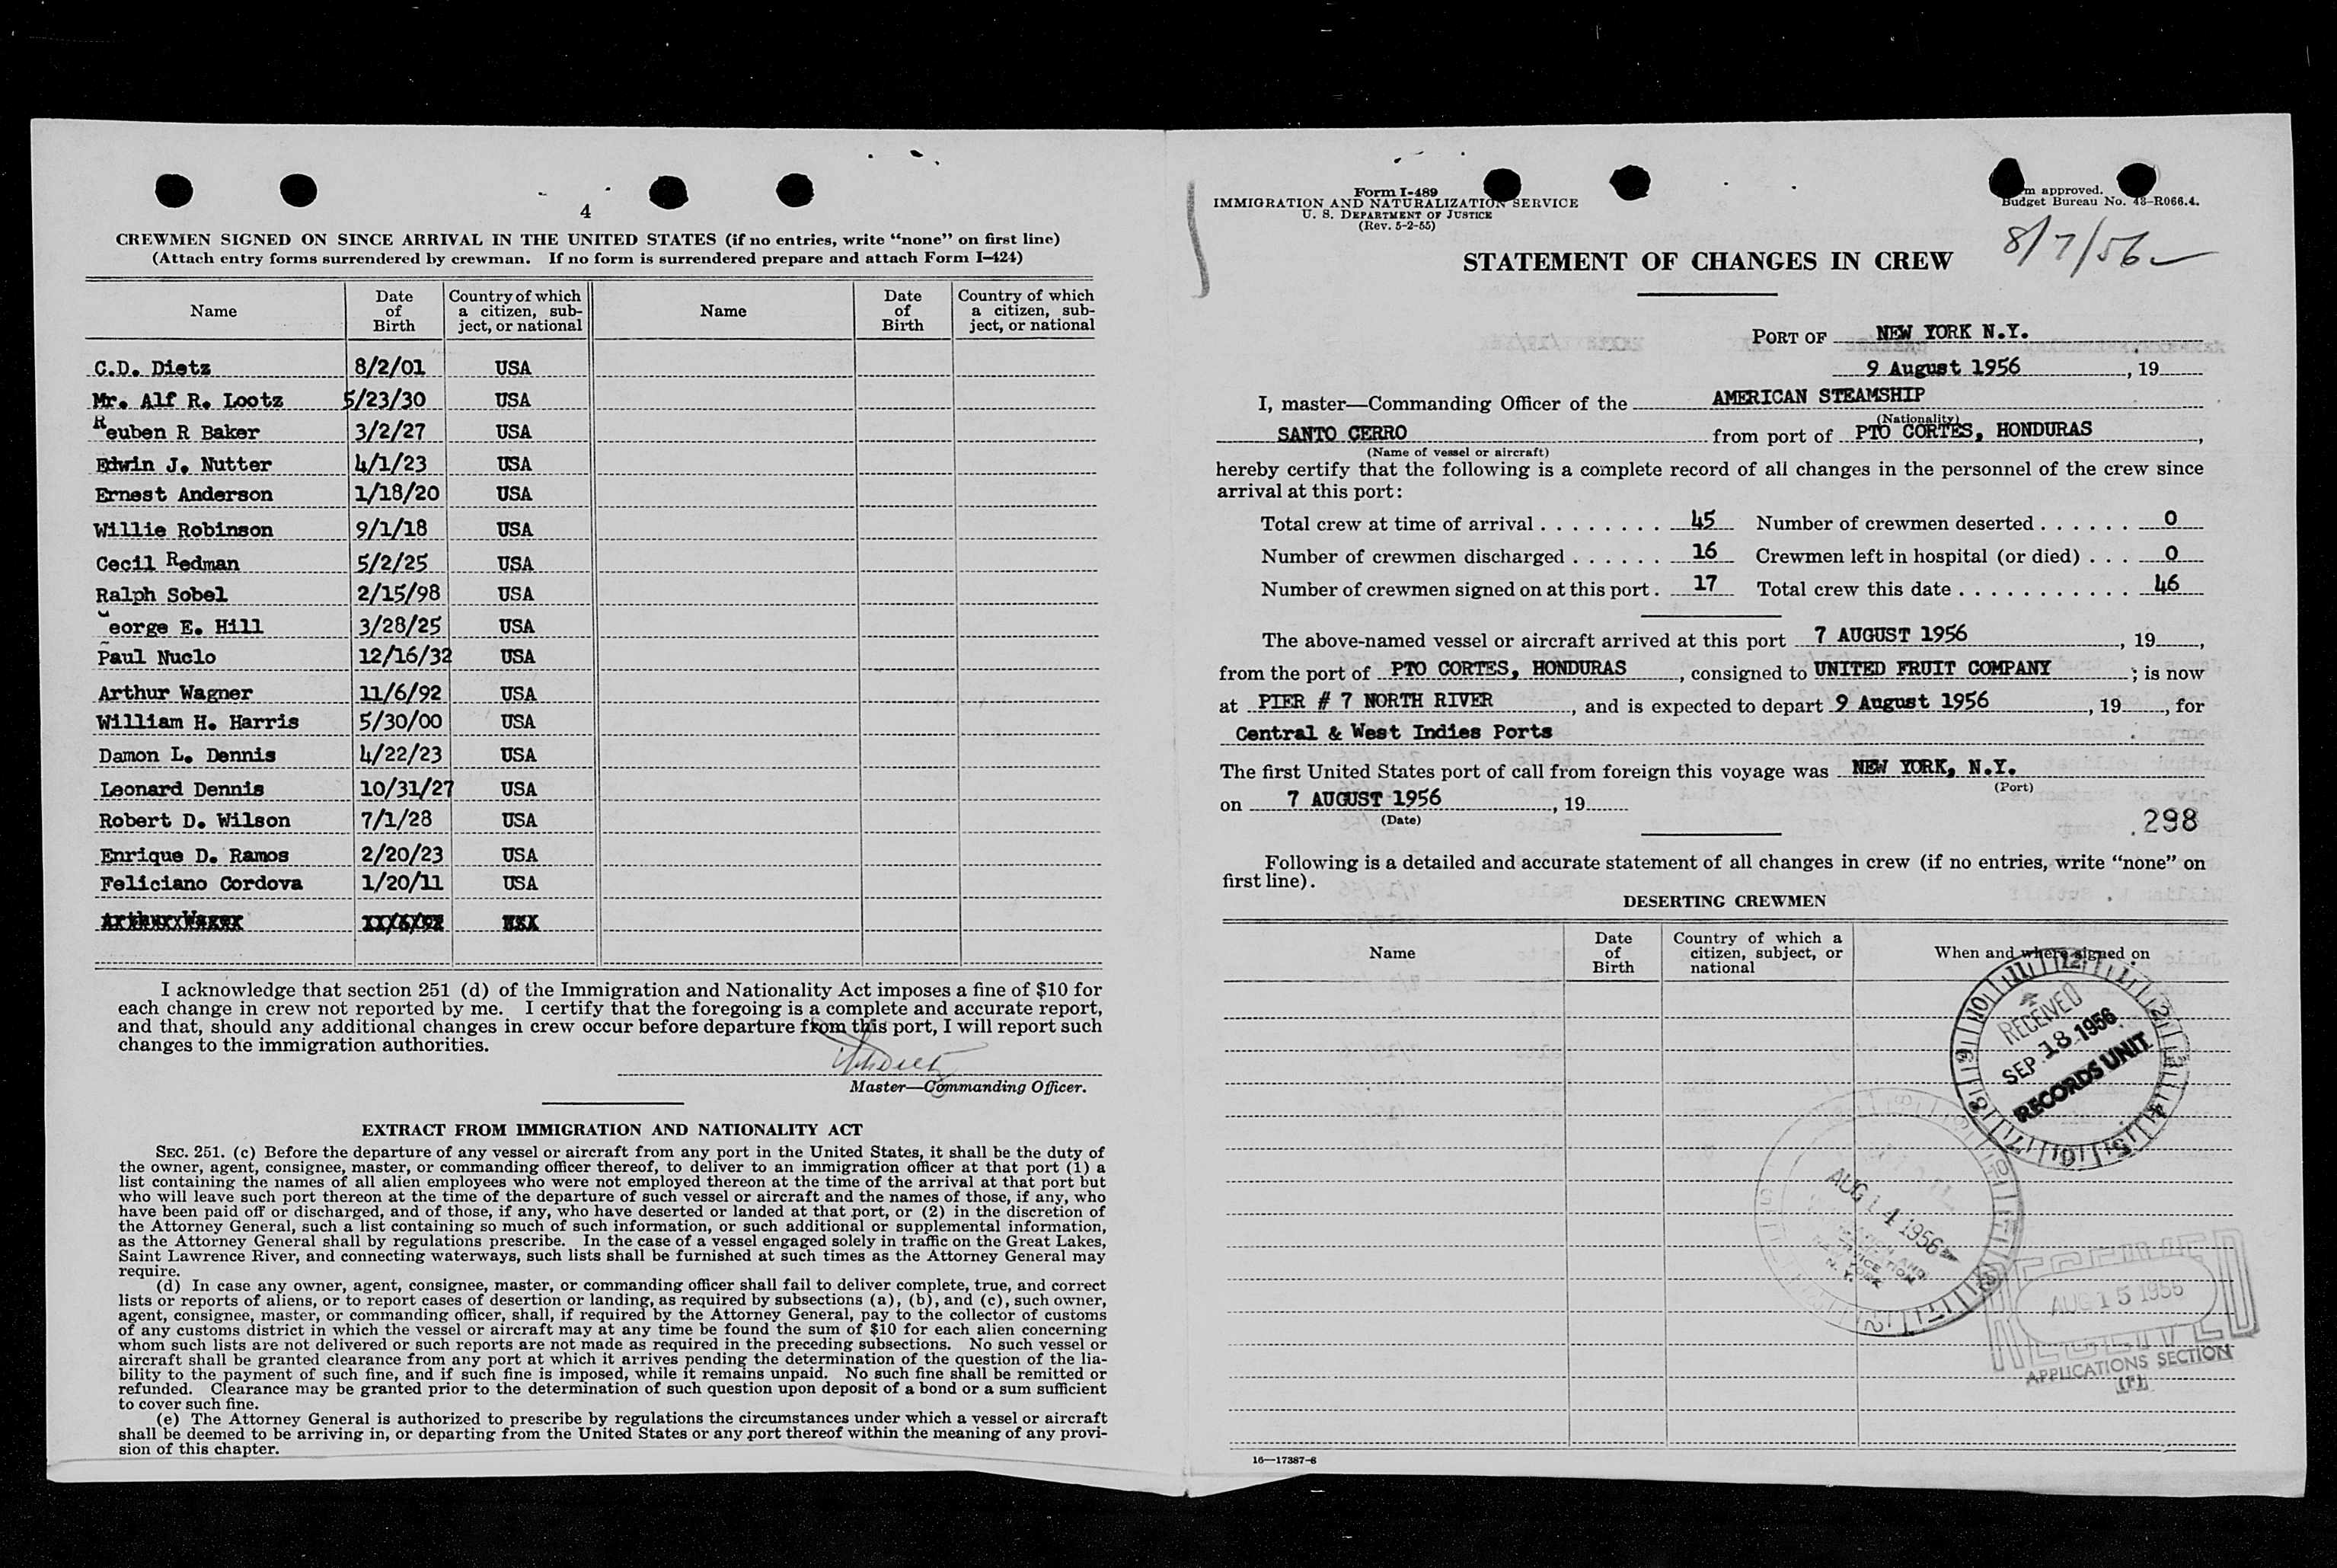 4
CREWMEN SIGNED ON SINCE ARRIVAL IN THE UNITED STATES (if no entries, write “none” on first line)
(Attach entry forms surrendered by crewman. If no form is surrendered prepare and attach Form I-424)
Name Date of Birth Country of which a citizen, subject, or national Name Date of Birth Country of which a citizen, subject, or national
C.D. Dietz 8/2/01 USA
Mr. Alf R. Lootz 5/23/30 USA
Reuben R Baker 3/2/27 USA
Edwin J. Nutter 4/1/23 USA
Ernest Anderson 1/18/20 USA
Willie Robinson 9/1/18 USA
Cecil Redman 5/2/25 USA
Ralph Sobel 2/15/98 USA
George E. Hill 3/28/25 USA
Paul Nuclo 12/16/32 USA
Arthur Wagner 11/6/92 USA
William H. Harris 5/30/00 USA
Damon L. Dennis 4/22/23 USA
Leonard Dennis 10/31/27 USA
Robert D. Wilson 7/1/28 USA
Enrique D. Ramos 2/20/23 USA
Feliciano Cordova 1/20/11 USA
I acknowledge that section 251 (d) of the Immigration and Nationality Act imposes a fine of $10 for
each change in crew not reported by me. I certify that the foregoing is a complete and accurate report,
and that, should any additional changes in crew occur before departure from this port, I will report such
changes to the immigration authorities.
Master—Commanding Officer.
EXTRACT FROM IMMIGRATION AND NATIONALITY ACT
SEC. 251. (c) Before the departure of any vessel or aircraft from any port in the United States, it shall be the duty of
the owner, agent, consignee, master, or commanding officer thereof, to deliver to an immigration officer at that port (1) a
list containing the names of all alien employees who were not employed thereon at the time of the arrival at that port but
who will leave such port thereon at the time of the departure of such vessel or aircraft and the names of those, if any, who
have been paid off or discharged, and of those, if any, who have deserted or landed at that port, or (2) in the discretion of
the Attorney General, such a list containing so much of such information, or such additional or supplemental information,
as the Attorney General shall by regulations prescribe. In the case of a vessel engaged solely in traffic on the Great Lakes,
Saint Lawrence River, and connecting waterways, such lists shall be furnished at such times as the Attorney General may
require.
(d) In case any owner, agent, consignee, master, or commanding officer shall fail to deliver complete, true, and correct
lists or reports of aliens, or to report cases of desertion or landing, as required by subsections (a), (b), and (c), such owner,
agent, consignee, master, or commanding officer, shall, if required by the Attorney General, pay to the collector of customs
of any customs district in which the vessel or aircraft may at any time be found the sum of $10 for each alien concerning
whom such lists are not delivered or such reports are not made as required in the preceding subsections. No such vessel or
aircraft shall be granted clearance from any port at which it arrives pending the determination of the question of the lia-
bility to the payment of such fine, and if such fine is imposed, while it remains unpaid. No such fine shall be remitted or
refunded. Clearance may be granted prior to the determination of such question upon deposit of a bond or a sum sufficient
to cover such fine.
(e) The Attorney General is authorized to prescribe by regulations the circumstances under which a vessel or aircraft
shall be deemed to be arriving in, or departing from the United States or any port thereof within the meaning of any provi-
sion of this chapter.
Form I-489
IMMIGRATION AND NATURALIZATION SERVICE
U. S. DEPARTMENT OF JUSTICE
(Rev. 5-2-55)
approved.
Budget Bureau No. 43-R066.4.
8/7/56
STATEMENT OF CHANGES IN CREW
PORT OF NEW YORK N.Y.
9 August 1956, 19
I, master—Commanding Officer of the AMERICAN STEAMSHIP
(Nationality)
SANTO CERRO from port of PTO CORTES, HONDURAS,
(Name of vessel or aircraft)
hereby certify that the following is a complete record of all changes in the personnel of the crew since
arrival at this port:
Total crew at time of arrival . . . . . . . . 45 Number of crewmen deserted . . . . . . 0
Number of crewmen discharged . . . . . . 16 Crewmen left in hospital (or died) . . . 0
Number of crewmen signed on at this port . 17 Total crew this date . . . . . . . . . . . 46
The above-named vessel or aircraft arrived at this port 7 AUGUST 1956, 19,
from the port of PTO CORTES, HONDURAS, consigned to UNITED FRUIT COMPANY; is now
at PIER # 7 NORTH RIVER, and is expected to depart 9 August 1956, 19, for
Central & West Indies Ports
The first United States port of call from foreign this voyage was NEW YORK, N.Y.
(Port)
on 7 AUGUST 1956, 19
(Date)
298
Following is a detailed and accurate statement of all changes in crew (if no entries, write “none” on
first line).
DESERTING CREWMEN
Name Date of Birth Country of which a citizen, subject, or national When and where signed on
RECEIVED
SEP 18 1956
RECORDS UNIT
AUG 14 1956
AUG 15 1956
RECEIVED
APPLICATIONS SECTION
16—17387-6